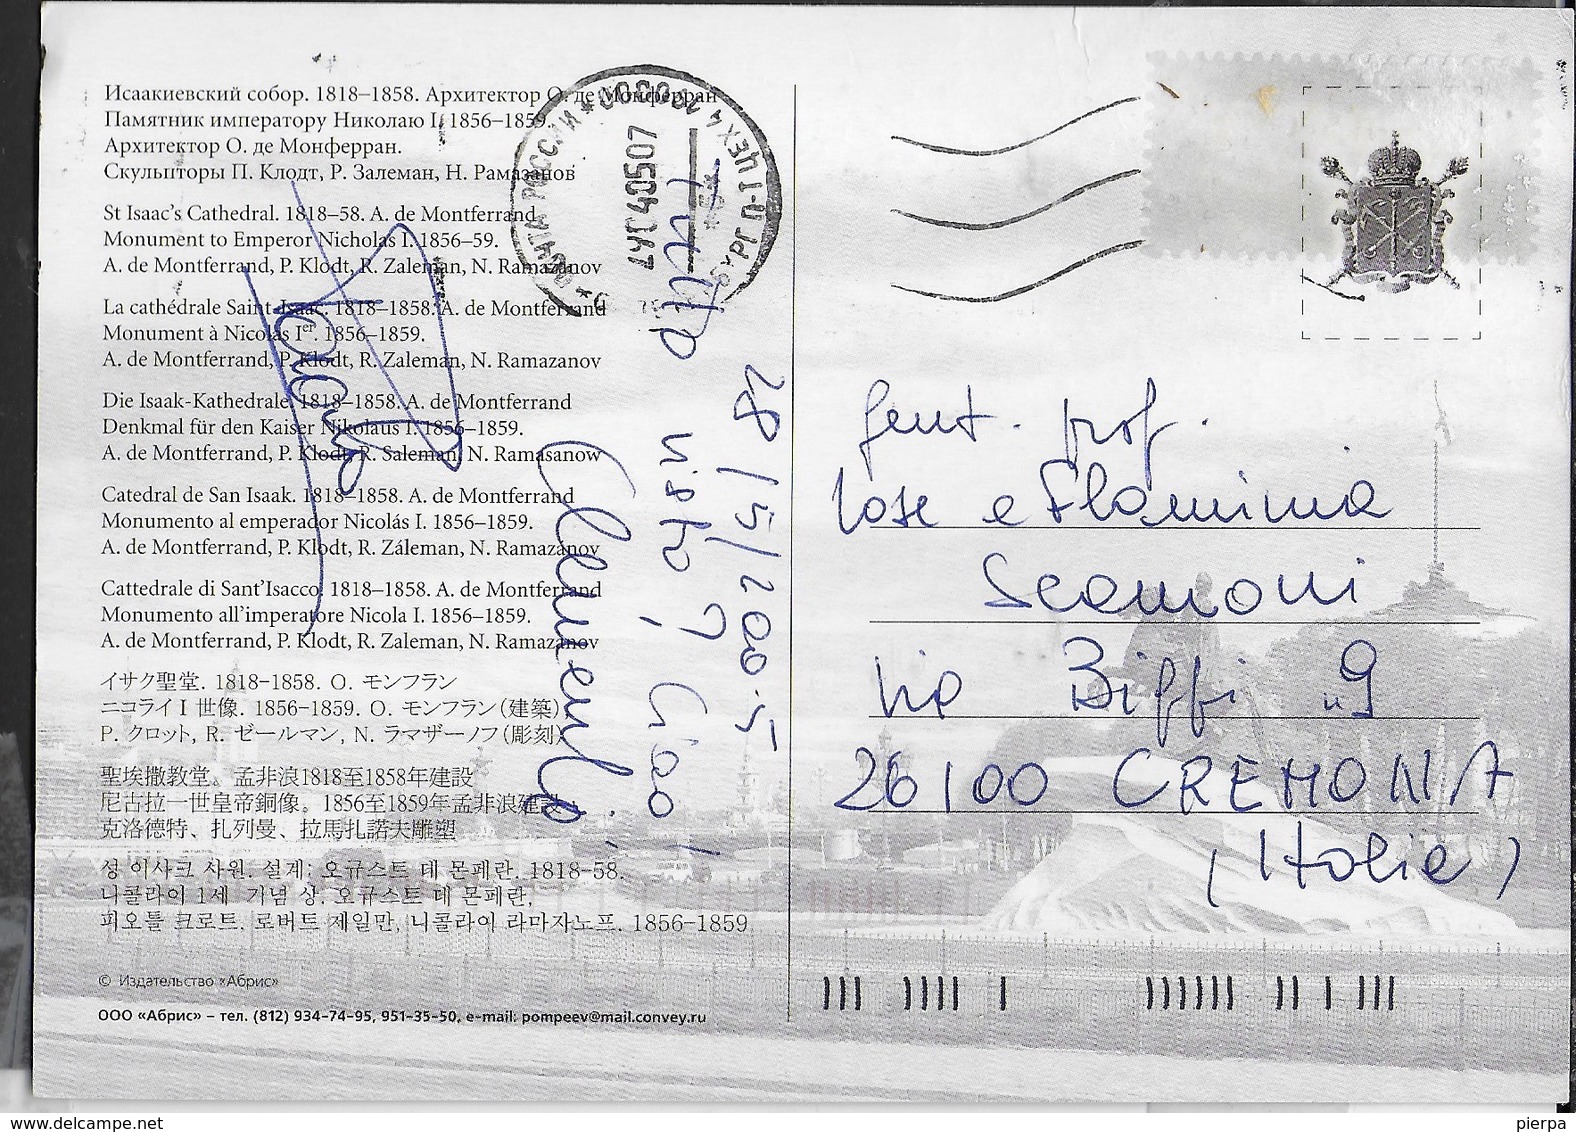 Исаакиевский собор. 1818–1858. Архитектор О. де Монферран
Памятник императору Николаю I. 1856–1859.
Архитектор О. де Монферран.
Скульпторы П. Клодт, Р. Залеман, Н. Рамазанов
St Isaac's Cathedral. 1818–58. A. de Montferrand
Monument to Emperor Nicholas I. 1856–59.
A. de Montferrand, P. Klodt, R. Zaleman, N. Ramazanov
La cathédrale Saint-Isaac. 1818–1858. A. de Montferrand
Monument à Nicolas Ier. 1856–1859.
A. de Montferrand, P. Klodt, R. Zaleman, N. Ramazanov
Die Isaak-Kathedrale. 1818–1858. A. de Montferrand
Denkmal für den Kaiser Nikolaus I. 1856–1859.
A. de Montferrand, P. Klodt, R. Saleman, N. Ramasanow
Catedral de San Isaak. 1818–1858. A. de Montferrand
Monumento al emperador Nicolás I. 1856–1859.
A. de Montferrand, P. Klodt, R. Záleman, N. Ramazánov
Cattedrale di Sant'Isacco. 1818–1858. A. de Montferrand
Monumento all'imperatore Nicola I. 1856–1859.
A. de Montferrand, P. Klodt, R. Zaleman, N. Ramazanov
イサク聖堂. 1818–1858. O. モンフラン
ニコライ I 世像. 1856–1859. O. モンフラン(建築),
P. クロット, R. ゼールマン, N. ラマザーノフ(彫刻)
聖埃撒教堂。孟非浪1818至1858年建設
尼古拉一世皇帝銅像。1856至1859年孟非浪建設,
克洛德特、扎列曼、拉馬扎諾夫雕塑
성 이사크 사원. 설계: 오귀스트 데 몬페란. 1818-58.
니콜라이 1세 기념 상. 오귀스트 데 몬페란,
피오틀 크로트. 로버트 제일만, 니콜라이 라마자노프. 1856-1859
© Издательство «Абрис»
ООО «Абрис» – тел. (812) 934-74-95, 951-35-50, e-mail: pompeev@mail.convey.ru
ПОЧТА РОССИИ
190000
ЦЕХ 4
40507
28/5/2005
Tutto
visto, Ciao!
Clemente
Gent. prof.
Jose e Flaminia
Scamoni
Via Biffi n 9
26100 CREMONA
(Italie)
www.delcampe.net
pierpa